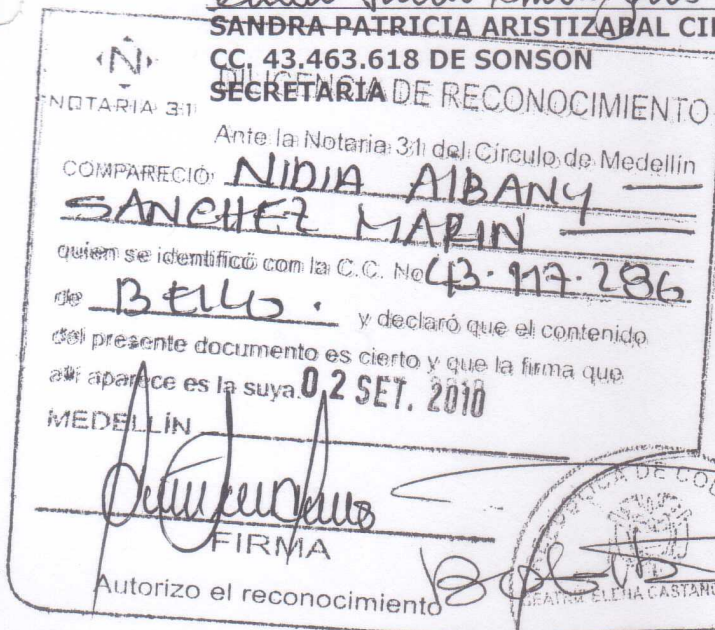 SANDRA PATRICIA ARISTIZABAL CI
CC. 43.463.618 DE SONSON
SECRETARIA
N
NOTARIA 31
DILIGENCIA DE RECONOCIMIENTO
Ante la Notaria 31 del Círculo de Medellín
COMPARECIÓ NIDIA AlBANY
SANCHEZ MARIN
quien se identificó con la C.C. No 43.117.286
de BELLO.
y declaró que el contenido
del presente documento es cierto y que la firma que
allí aparece es la suya. 02 SET. 2010
MEDELLÍN
FIRMA
Autorizo el reconocimiento
DE COL
BEATRIZ ELENA CASTAÑO